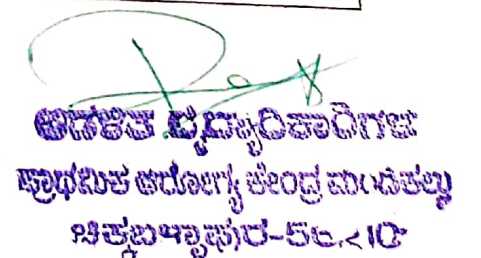 ಆಡಳಿತ ವೈದ್ಯಾಧಿಕಾರಿಗಳು
ಪ್ರಾಥಮಿಕ ಆರೋಗ್ಯ ಕೇಂದ್ರ ಮಂಚಿಕಲ್ಲು
ಚಿಕ್ಕಬಳ್ಳಾಪುರ